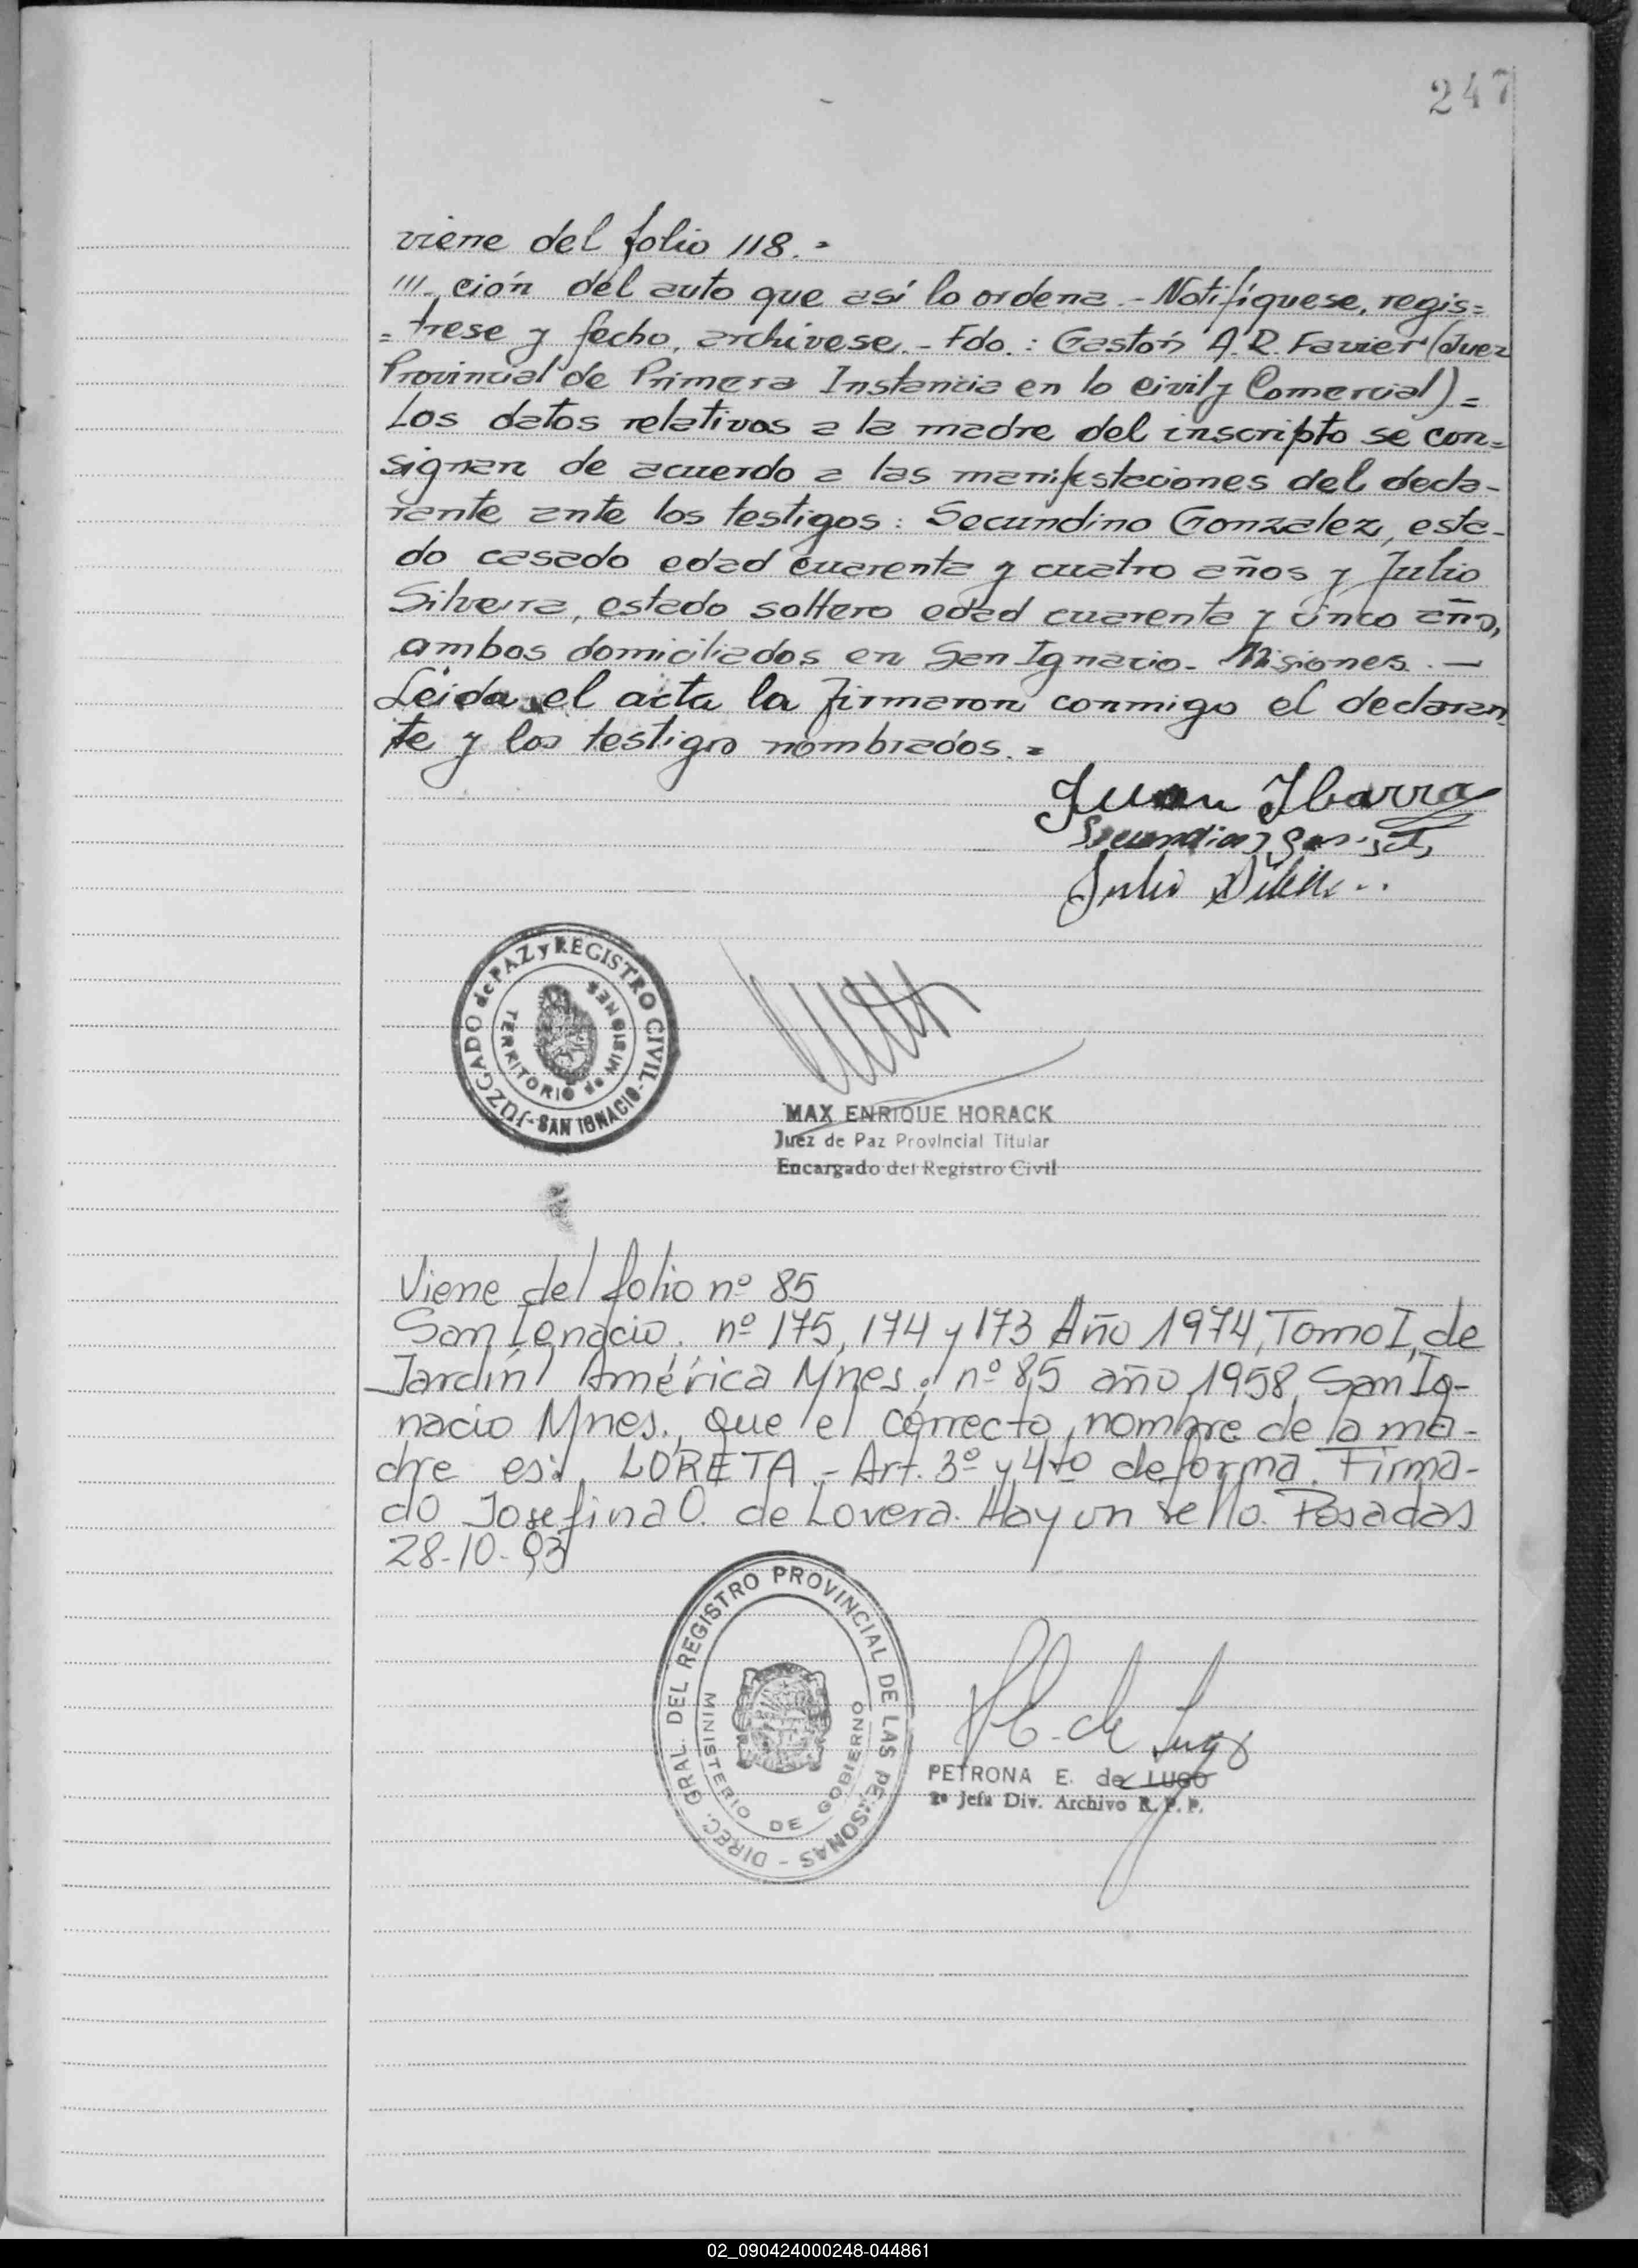 247
viene del folio 118.=
///.ción del auto que así lo ordena.- Notifíquese, regis=
=trese y fecho, archívese.- Fdo.: Gastón A.R. Favier (Juez
Provincial de Primera Instancia en lo Civil y Comercial)=
Los datos relativos a la madre del inscripto se con=
signan de acuerdo a las manifestaciones del decla-
rante ante los testigos: Secundino Gonzalez, esta-
do casado edad cuarenta y cuatro años y Julio
Silveira, estado soltero edad cuarenta y cinco años,
ambos domiciliados en San Ignacio- Misiones.—
Leida el acta la firmaron conmigo el declaran
te y los testigos nombrados.=
Juan Ibarra
Secundino
Julio
JUZGADO de PAZ y REGISTRO CIVIL - SAN IGNACIO -
TERRITORIO de MISIONES
MAX ENRIQUE HORACK
Juez de Paz Provincial Titular
Encargado del Registro Civil
Viene del folio nº 85
San Ignacio. nº 175, 174 y 173 Año 1974, Tomo I, de
Jardín América Mnes; nº 85 año 1958 San Ig-
nacio Mnes., que el correcto nombre de la ma-
dre es: LORETA.- Art. 3º y 4to de forma. Firma-
do Josefina O. de Lovera. Hay un sello. Posadas
28-10-93
DIREC. GRAL. DEL REGISTRO PROVINCIAL DE LAS PERSONAS -
MINISTERIO DE GOBIERNO
de Lugo
PETRONA E. de LUGO
2ª Jefa Div. Archivo R.P.P.
02_090424000248-044861